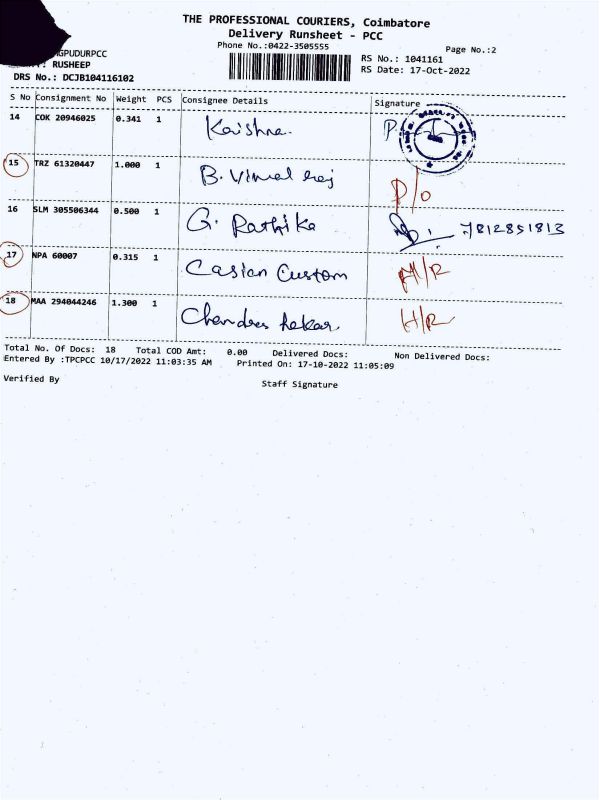 THE PROFESSIONAL COURIERS, Coimbatore
Delivery Runsheet - PCC
Phone No.:0422-3505555
Page No.:2
GPUDURPCC
: RUSHEEP
RS No.: 1041161
DRS No.: DCJB104116102
RS Date: 17-Oct-2022
S No Consignment No Weight PCS Consignee Details Signature
14 COK 20946025 0.341 1 Krishna P.
15 TRZ 61320447 1.000 1 B. Vimal raj D/o
16 SLM 305506344 0.500 1 G. Rathika :7812851813
17 NPA 60007 0.315 1 Casian Custom H/R
18 MAA 294044246 1.300 1 Chandra sekar H/R
Total No. Of Docs: 18 Total COD Amt: 0.00 Delivered Docs: Non Delivered Docs:
Entered By :TPCPCC 10/17/2022 11:03:35 AM Printed On: 17-10-2022 11:05:09
Verified By
Staff Signature